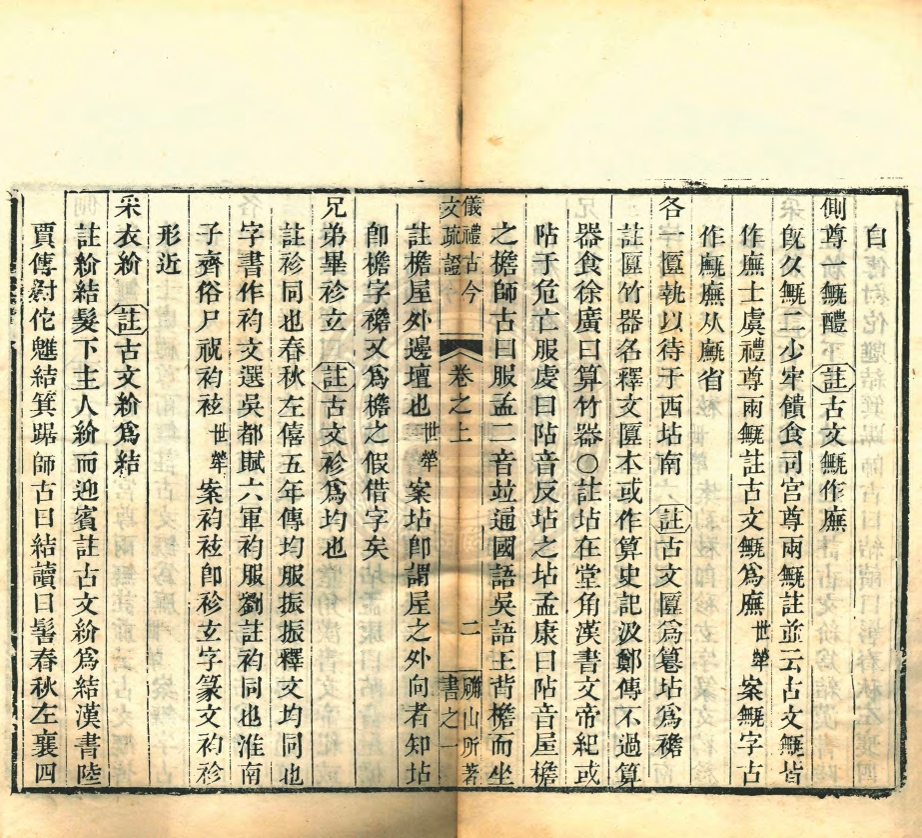 白
側尊一甒醴㊟註古文甒作廡
既夕甒二少牢饋食司宮尊兩甒註竝云古文甒皆
作廡士虞禮尊兩甒註古文甒爲廡世犖案甒字古
作𢉫廡从𢉫省
各一匴執以待于西坫南註古文匴爲篹坫爲襜
註匴竹器名釋文匴本或作算史記汲鄭傳不過算
器食徐廣曰算竹器○註坫在堂角漢書文帝紀或
阽于危亡服虔曰阽音反坫之坫孟康曰阽音屋檐
之檐師古曰服孟二音竝通國語吳語王背檐而坐
儀禮古今文疏證 卷之上 二 確山所著書之一
註檐屋外邊壇也世犖案坫卽謂屋之外向者知坫
卽檐字襜又爲檐之假借字矣
兄弟畢袗立註古文袗爲均也
註袗同也春秋左僖五年傳均服振振釋文均同也
字書作袀文選吳都賦六軍袀服劉註袀同也淮南
子齊俗尸祝袀袨世犖案袀袨卽袗玄字篆文袀袗
形近
采衣紒註古文紒爲結
註紒結髮下主人紒而迎賓註古文紒爲結漢書陸
賈傳尉佗魋結箕踞師古曰結讀曰髻春秋左襄四